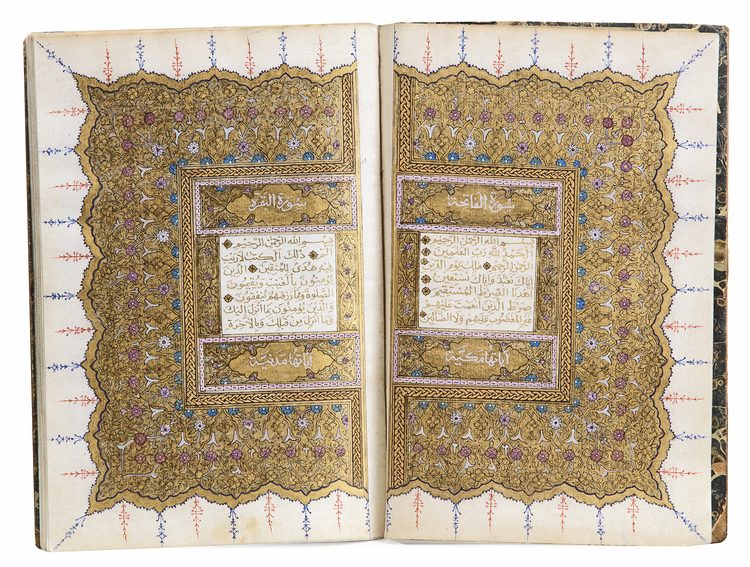 سورة الفاتحة
بسم الله الرحمن الرحيم
الحمد لله رب العالمين
الرحمن الرحيم ملك يوم الدين
اياك نعبد واياك نستعين
اهدنا الصراط المستقيم
صراط الذين انعمت عليهم
غير المغضوب عليهم ولا الضالين
اياتها مكية
سورة البقرة
بسم الله الرحمن الرحيم
الم ذلك الكتب لا ريب
فيه هدى للمتقين الذين
يؤمنون بالغيب ويقيمون
الصلوة ومما رزقناهم ينفقون
والذين يؤمنون بما انزل اليك
وما انزل من قبلك وبالاخرة
اياتها مدنية